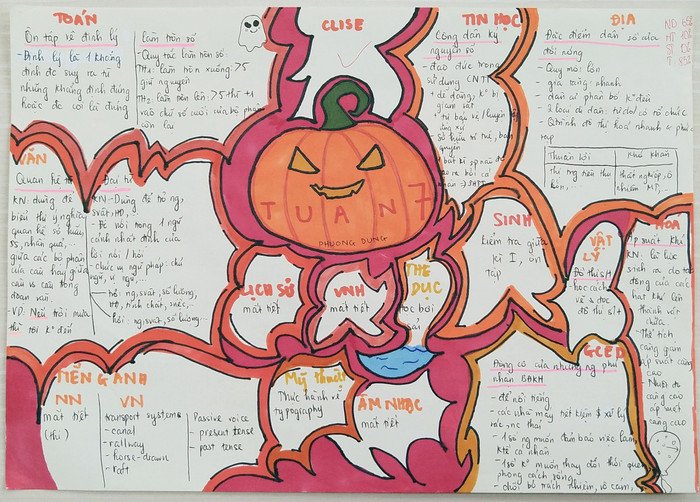 TOÁN
Ôn tập về định lý
- Định lý là 1 khẳng
định đc suy ra từ
những khẳng định đúng
hoặc đc coi là đúng
làm tròn số
- Quy tắc làm tròn số
TH1: làm tròn xuống: <5
giữ nguyên
TH2: làm tròn lên: >5 thì +1
vào chữ số cuối của bộ phận
còn lại
CLISE
TIN HỌC
Công dân kỷ
nguyên số
- đạo đức trong
sử dụng CNTT
+ dễ dàng, k° bị
giám sát
+ từ bạn về / luyện tập
ứng xử
Đặc điểm dân số của
đới nóng
- Quy mô: lớn
- gia tăng: nhanh
- dân cư phân bố k° đều
- 2 loại di dân: tự do / có tổ chức
- Qtrình đô thị hoá nhanh &
ĐỊA
Thuận lợi
Khó khăn
thất nghiệp, ô
nhiễm MT,...
VĂN
Quan hệ từ
KN: dùng để
biểu thị ý nghĩa
quan hệ sở hữu,
ss, nhân quả,...
giữa các bộ phận
của câu hay giữa
câu vs câu trong
đoạn văn.
- VD: Nếu trời mưa
thì tôi k° đến
Đại từ
- KN: Dùng để trỏ ng,
svật, HĐ,
- Đc nói trong 1 ngữ
cảnh nhất định của
lời nói / hỏi
- chức vụ ngữ pháp: chủ
ngữ, vị ngữ,...
trỏ: ng, svật, số lượng,
HĐ, tính chất, sviệc,...
hỏi: ng, svật, số lượng...
TUẦN 7
PHUONG DUNG
SINH
kiểm tra giữa
kì I, ôn
tập
VẬT
LÝ
Đồ thị s,t
- học cách
vẽ & đọc
đồ thị s/t
HÓA
Áp suất khí
KN: là lực
sinh ra do tác
động của các
hạt khí lên
thành vật
chứa
- Thể tích
càng giảm
áp suất càng
cao
- Nhiệt độ
càng cao
áp suất
càng cao
LỊCH SỬ
mất tiết
VNH
mất tiết
THỂ
DỤC
học bơi
sải
TIẾNG ANH
NN
mất tiết
(thi)
VN
transport systems
- canal
- railway
- horse-drawn
- raft
Passive voice
- present tense
- past tense
Mỹ thuật
Thực hành về
typography
ÂM NHẠC
mất tiết
GCED
Động cơ của những ng phụ
nhân BĐKH
- để nổi tiếng
- các nhà máy tiết kiệm $ xử lý
rác, nc thải
- 1 số ng muốn đảm bảo việc làm,
ktế cá nhân
- 1 số k° muốn thay đổi thói quen,
phong cách sống
- chối bỏ trách nhiệm, vô cảm,